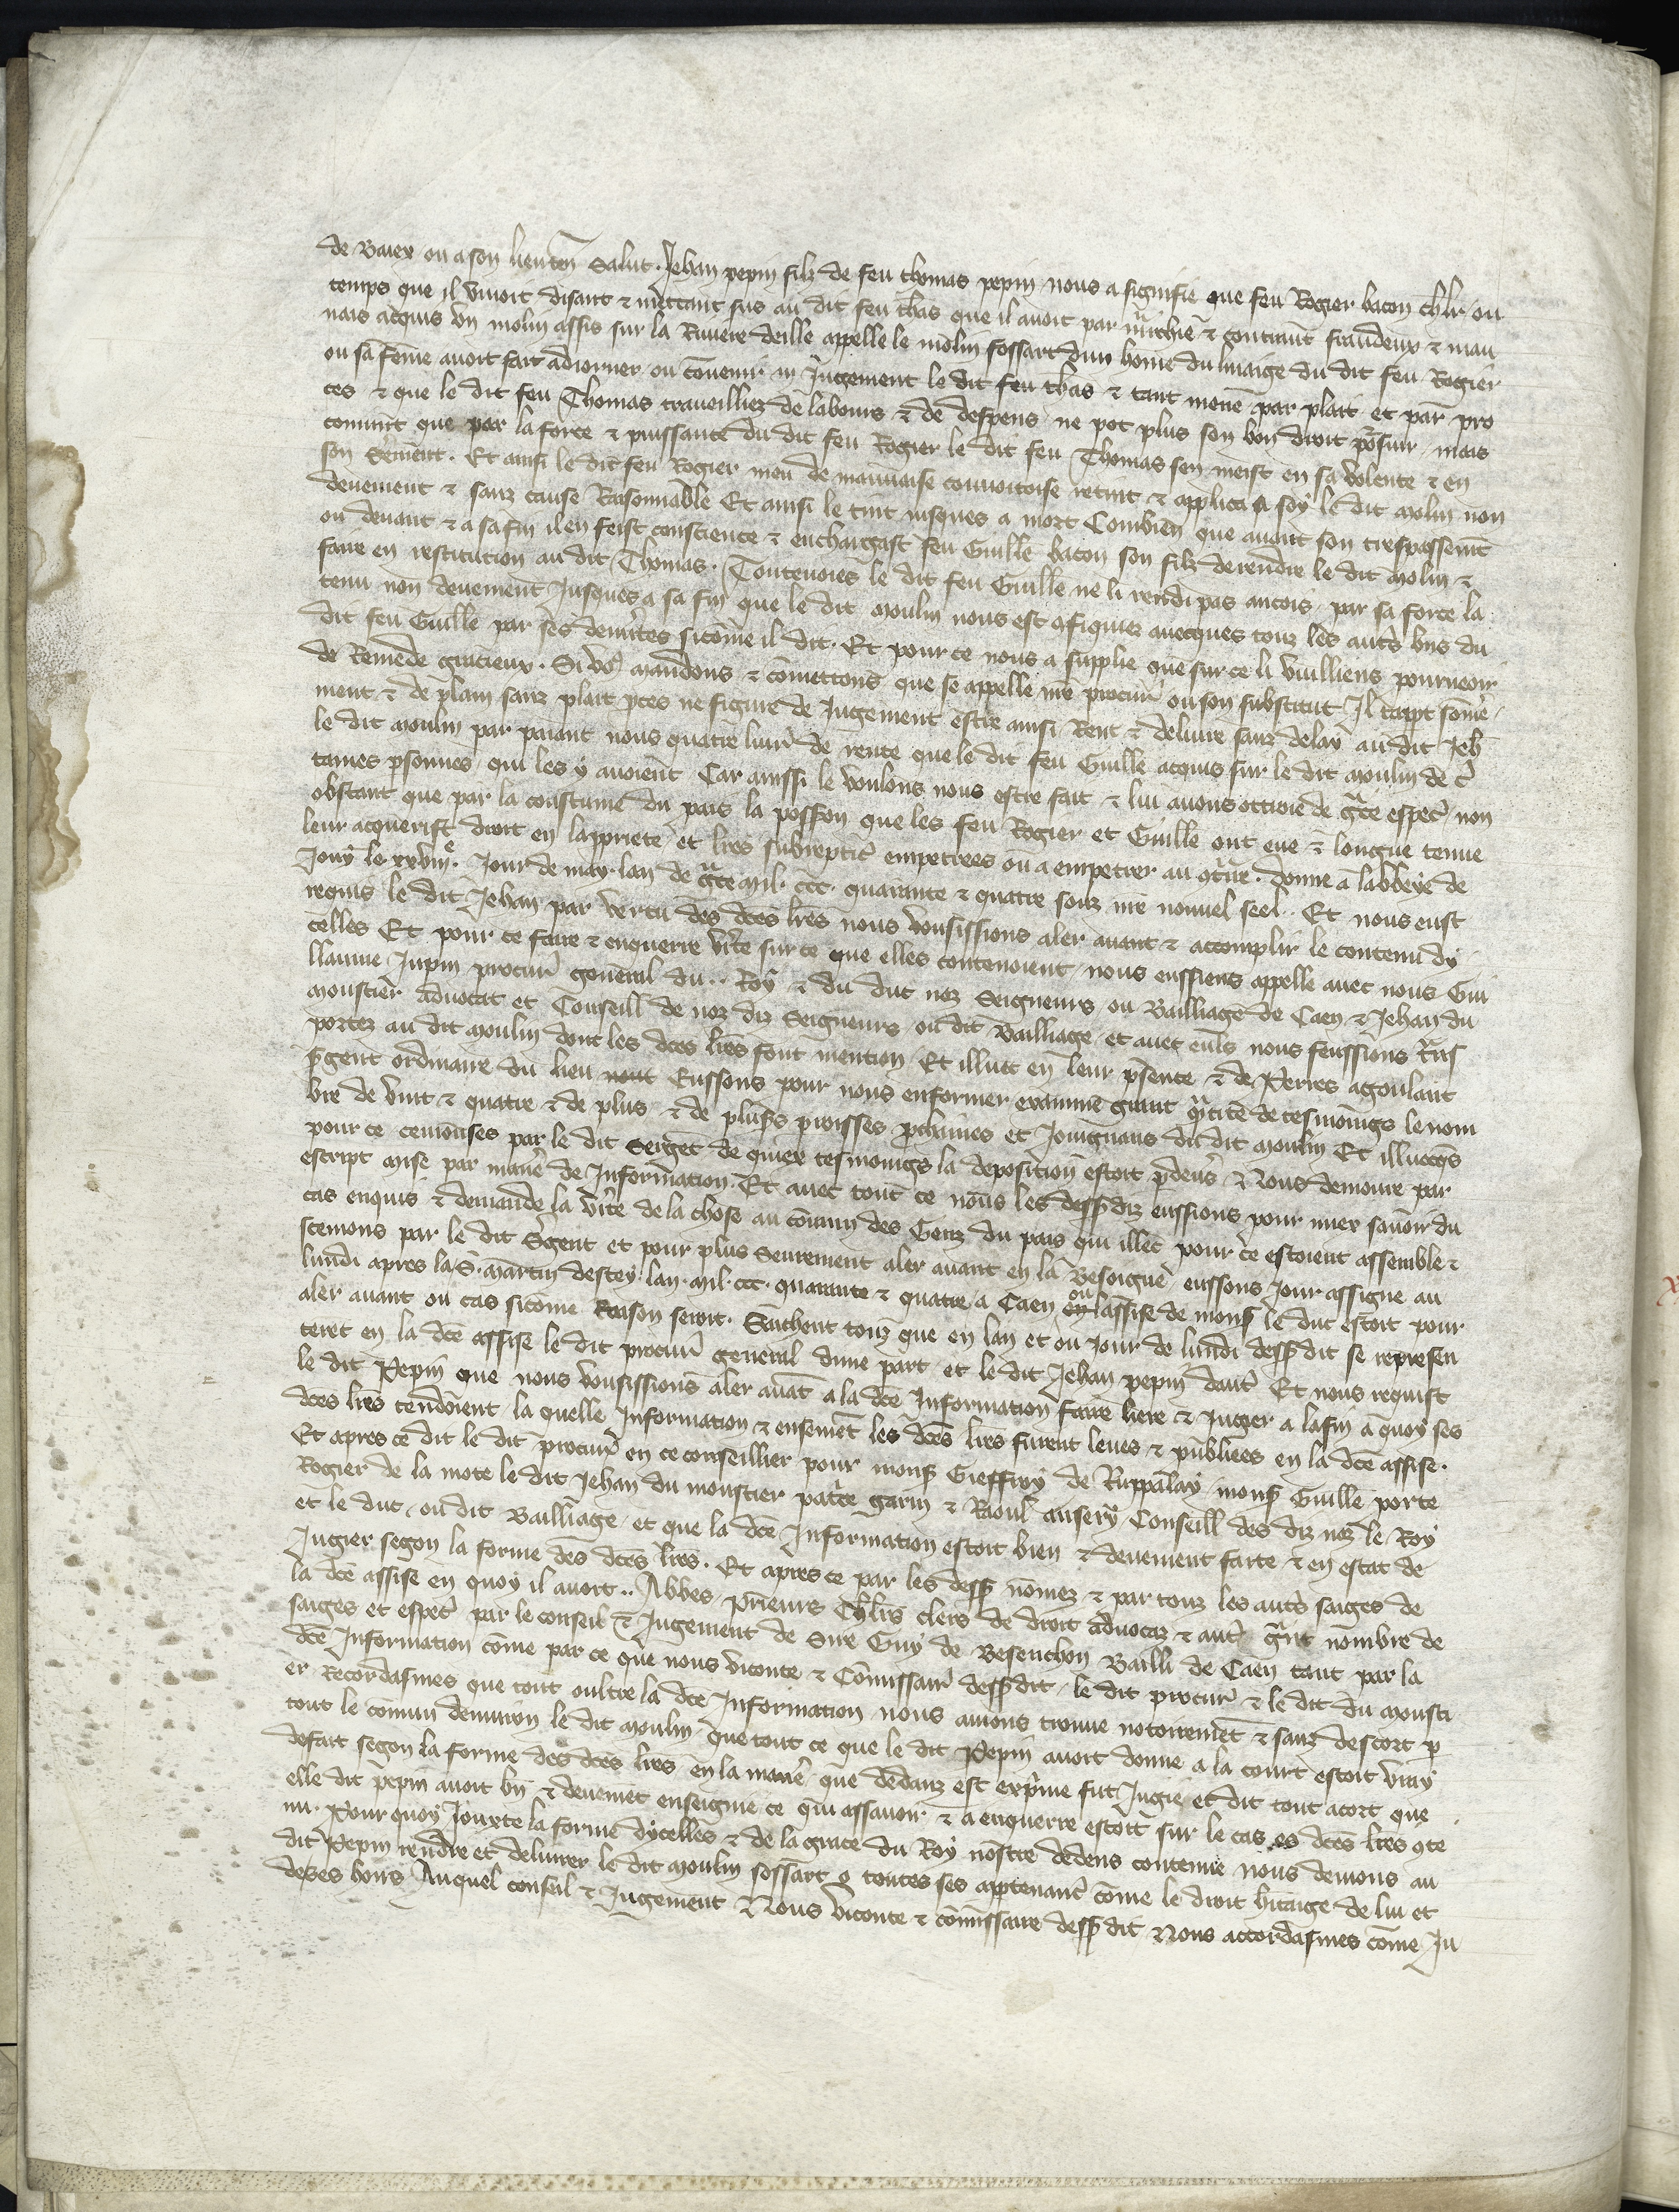 de Baiex ou a son lieuten̄ Salut. Jehan pepin filz de feu thomas pepin nous a signifie que feu Rogier bacon chlr̄ ou
temps que il vivoit disant & mettant sus au dit feu th̄as que il avoit par m̄chie & contraut fraudeux & mau
nais acquis un molin assis sur la Riuiere deille appelle le molin fossart dun hom̄e du linaige du dit feu Rogier
ou sa fem̄e auoit fait adiorner ou cōuenir in Jugement le dit feu th̄as & tant mene par plait et par pro
ces & que le dit feu Thomas traueilliez de labours & de despens ne pot plus son bon droit p̄suir mais
conuīt que par la force & puissance du dit feu Rogier le dit feu Thomas sen meist en sa volente & en
son sērmēt. Et ainsi le dit feu Rogier meu de mauuaise couuoitoise retint & applica a soy le dit molin non
deuement & sanz cause Raisonnable Et ainsi le tint iusques a mort Combien que auāt son trespassemēt
ou deuant & a sa fin il en feist conscience & enchargast feu Guille bacon son filz de rendre le dit molin &
faire en restitution au dit Thomas. Touteuoies le dit feu Guille ne li rendi pas ancois par sa force la
tenu non deuement Jusques a sa fin que le dit moulin nous est cōfisquez auecques touz les autr̄s bn̄s du
dit feu Guille par ses demērites sicōme il dit. Et pour ce nous a supplie que sur ce li vuilliens pourueoir
de Remede gracieux. Si vō mandons & cōmettons que se appelle nr̄e procur̄ ou son substitut Il tappt som̄e
ment & de plain sanz plait p̄ces ne figure de Jugement estre ainsi Rent & deliure sanz delay au dit Jeh̄
le dit moulin par paiant nous quatre liur̄ de rente que le dit feu Guille acquis sur le dit moulin de c̄
taines p̄sonnes qui les y auoient Car aussi le voulons nous estre fait & lui auons ottroie de gr̄ce especi non
obstant que par la coustume du pais la possion que les feu Rogier et Guille ont eue & longue tenue
leur acquerist droit en la ppriete et lr̄es subreptic̄ empetrees ou a empetrer au cōtr̄re. donne a labbeye de
Jouy le xxviiie. Jour de may. lan de gr̄ce mil. ccc. quarante & quatre souz nr̄e nouuel seel. Et nous eust
requis le dit Jehan par vertu des dc̄es lr̄es nous vousissions aler auant & acomplir le contenu dy
celles Et pour ce faire & enquerre vīte sur ce que elles contenoient nous eussiens appelle auec nous Gui
llaume Jupin procur̄ general du .. Roy & du duc noz Seigneurs ou Bailliage de Caen & Jehan du
moustier aduocat et Conseill de noz diz Seigneurs ou dit Bailliage et auec eulx nous feussions tr̄ns
portez au dit moulin dont les dc̄es lr̄es font mention Et illuec en leur p̄sence & de Perres agoulant
s̄gent ordinaire du lieu nous Eussons pour nous enformer examine grant q̄ntite de tesmoings le nom
bre de vint & quatre & de plus & de plus̄rs proisses p̄chaines et Joingnans du dit moulin Et illuecq̄s
pour ce cemonses par le dit Sergēt de quiex tesmoings la deposition estoit p̄deuers & Nous demoure par
escript mise par manē de Information. Et auec tout ce nous les dess̄ diz eussions pour miex sauoir du
cas enquis & demande la vīte de la chose au cōmun des Genz du pais qui illec pour ce estoient assemble &
scemons par le dit S̄gent et pour plus Seurement aler auant en la Besoigne eussons Jour assigne au
lundi apres la S. martin destey lan. mil. ccc. quarante & quatre a Caen ou lassise de mons̄ le duc estoit pour
aler auant ou cas sicōme Raison seroit. Sachent touz que en lan et ou Jour de lundi dess̄ dit se represen
teret en la dc̄e assise le dit procur̄ general dune part et le dit Jehan pepin dautr̄ Et nous requist
le dit Pepin que nous vousissions aler auāt a la dc̄e Information faire liere & Jugier a la fin a quoy ses
dc̄es lr̄es tendoient la quelle Information & ensemēt les dc̄es lr̄es furent leues & publiees en la dc̄e assise.
Et apres ce dit le dit procur̄ en ce conseillier pour mons̄ Gieffroy de Ruppalay mons̄ Guille porte
Rogier de la mote le dit Jehan du moustier patrc̄e garin & Raoul ansery Conseill des diz noz le Roy
et le duc ou dit Bailliage et que la dc̄e Information estoit bien & deuement faite & en estat de
Jugier segon la forme des dc̄es lr̄es. Et apres ce par les dess̄ nōmez & par touz les autr̄s saiges de
la dc̄e assise en quoy il auoit .. Abbes prieurs Chlr̄s clers de droit aduocaz & autr̄ gr̄nt nombre de
saiges et espec̄ par le conseil & Jugement de Sire Guy de Besenchon Bailli de Caen tant par la
dc̄e Information cōme par ce que nous viconte & Cōmissair̄ dess̄ dit le dit procur̄ & le dit du mousti
er Recordasmes que tout oultre la dc̄e Information nous auions trouue notoiremēt & sanz descort p̄
tout le cōmun denuiron le dit moulin que tout ce que le dit Pepin auoit donne a la court estoit vray
defait segon la forme des dc̄es lr̄es en la manē que dedanz est exp̄me fut Jugie et dit tout acort que
elle dit pepin auoit bn̄ & deuemēt enseigne ce qui assauoir & a enquerre estoit sur le cas es dc̄es lr̄es cōte
nu. Pour quoy Jouxte la forme dycelles & de la grace du Roy nostre dedens contenue nous deuions au
dit Pepin rendre et deliurer le dit moulin fossart o toutes ses apptenanc̄ cōme le droit hitaige de lui et
de ses hoirs Auquel conseil & Jugement Nous viconte & cōmissaire dess̄ dit Nous accordasmes cōme Ju